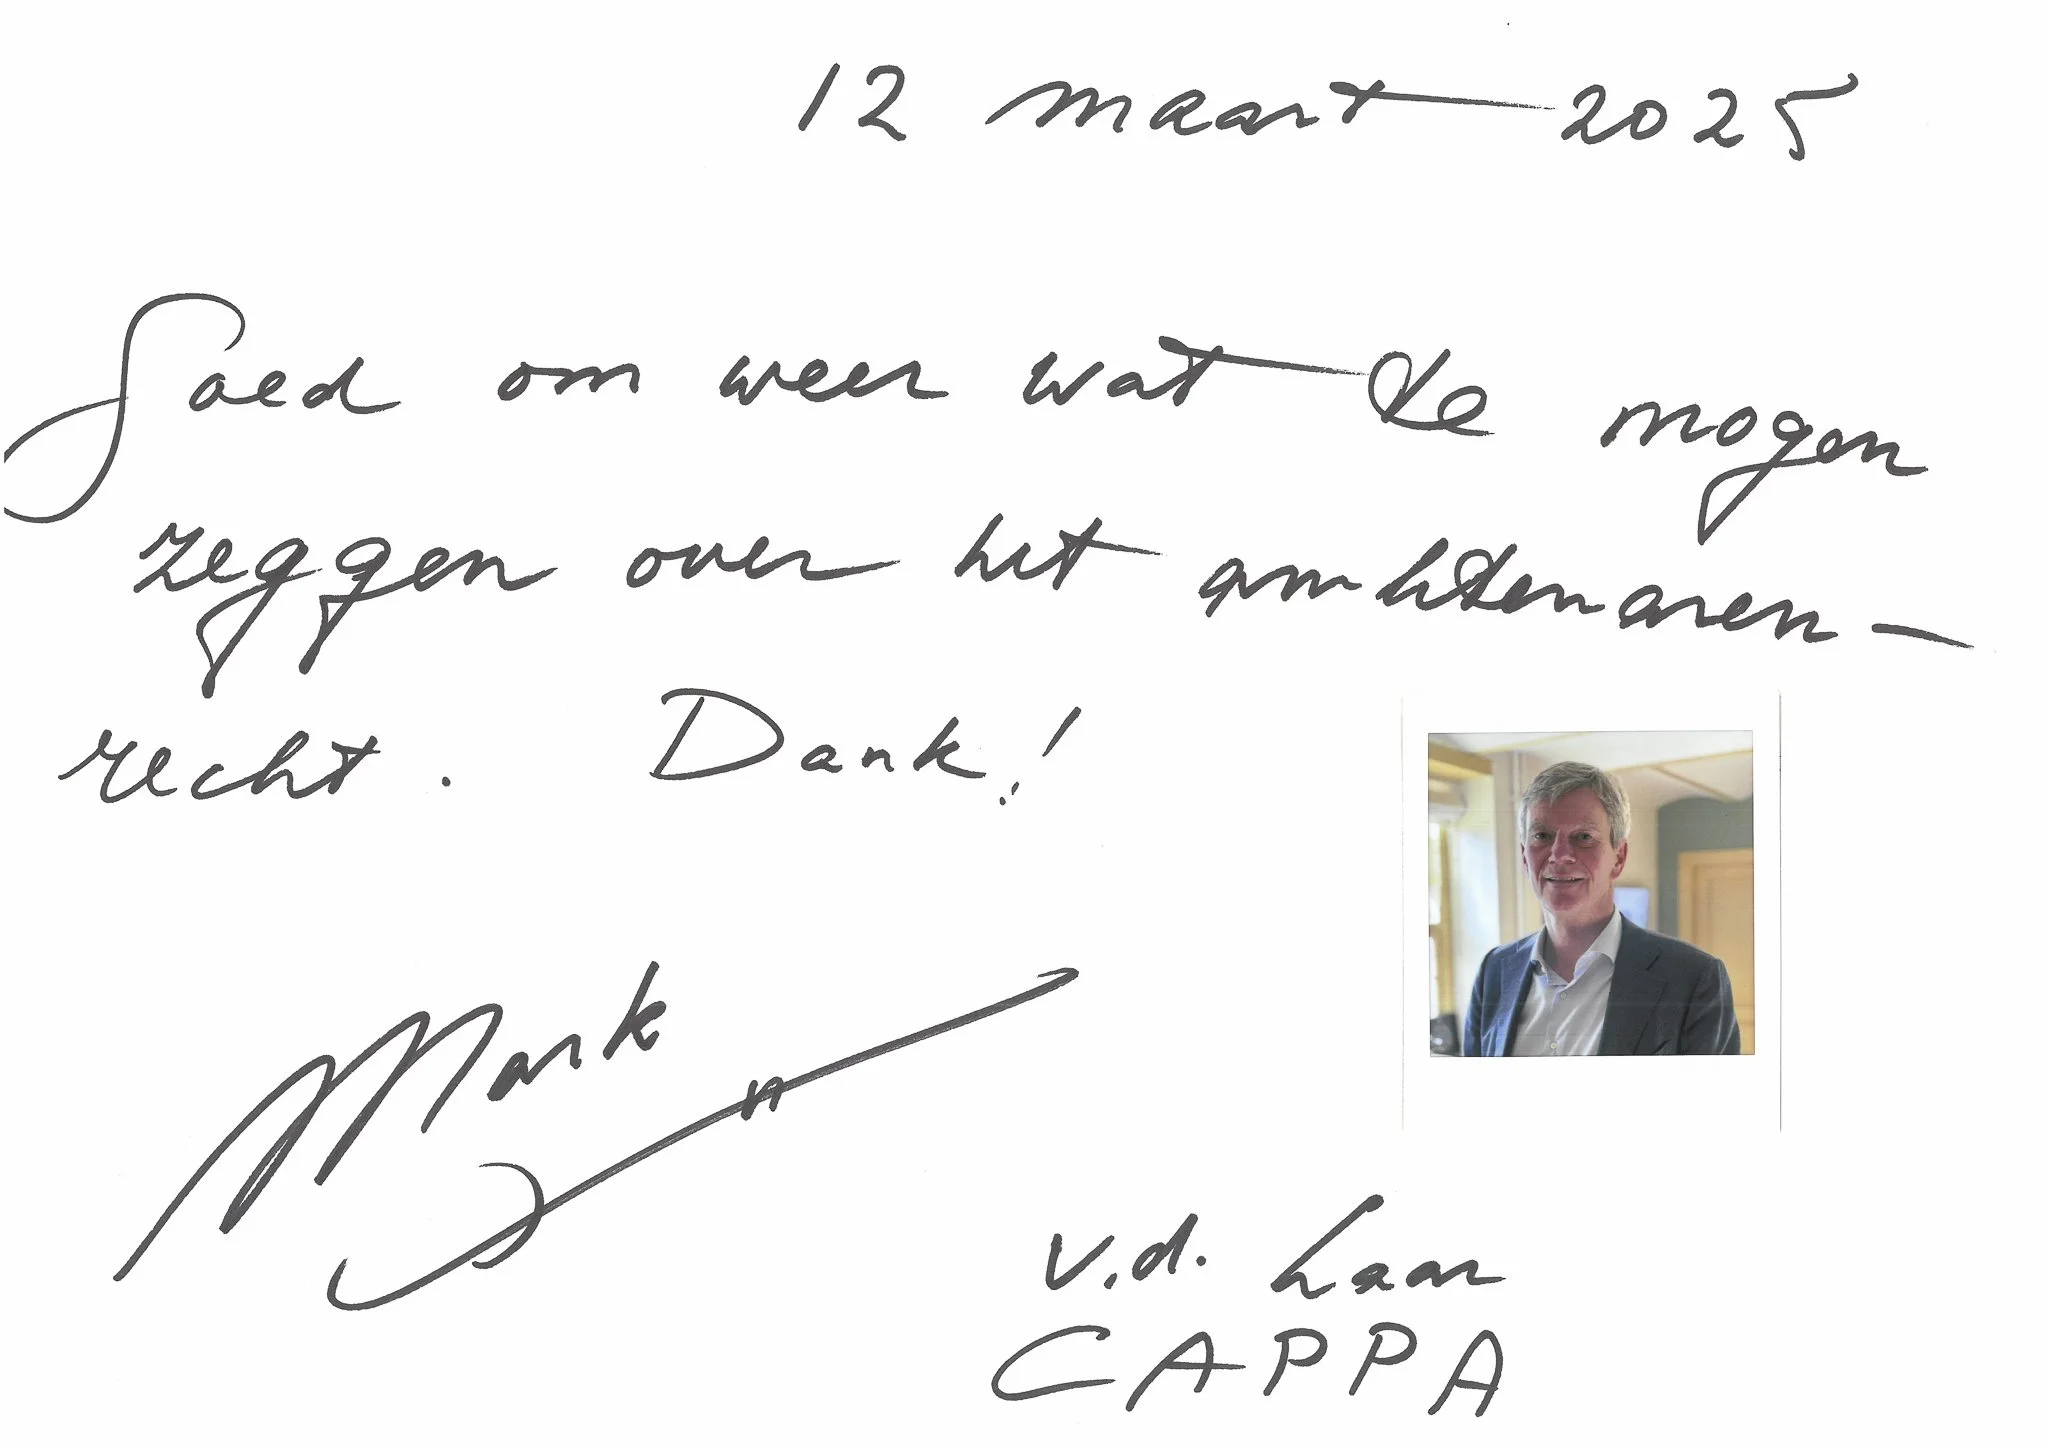 12 maart 2025
Goed om weer wat te mogen
zeggen over het ambtenaren-
recht. Dank!
Mark
v.d. Laar
CAPPA